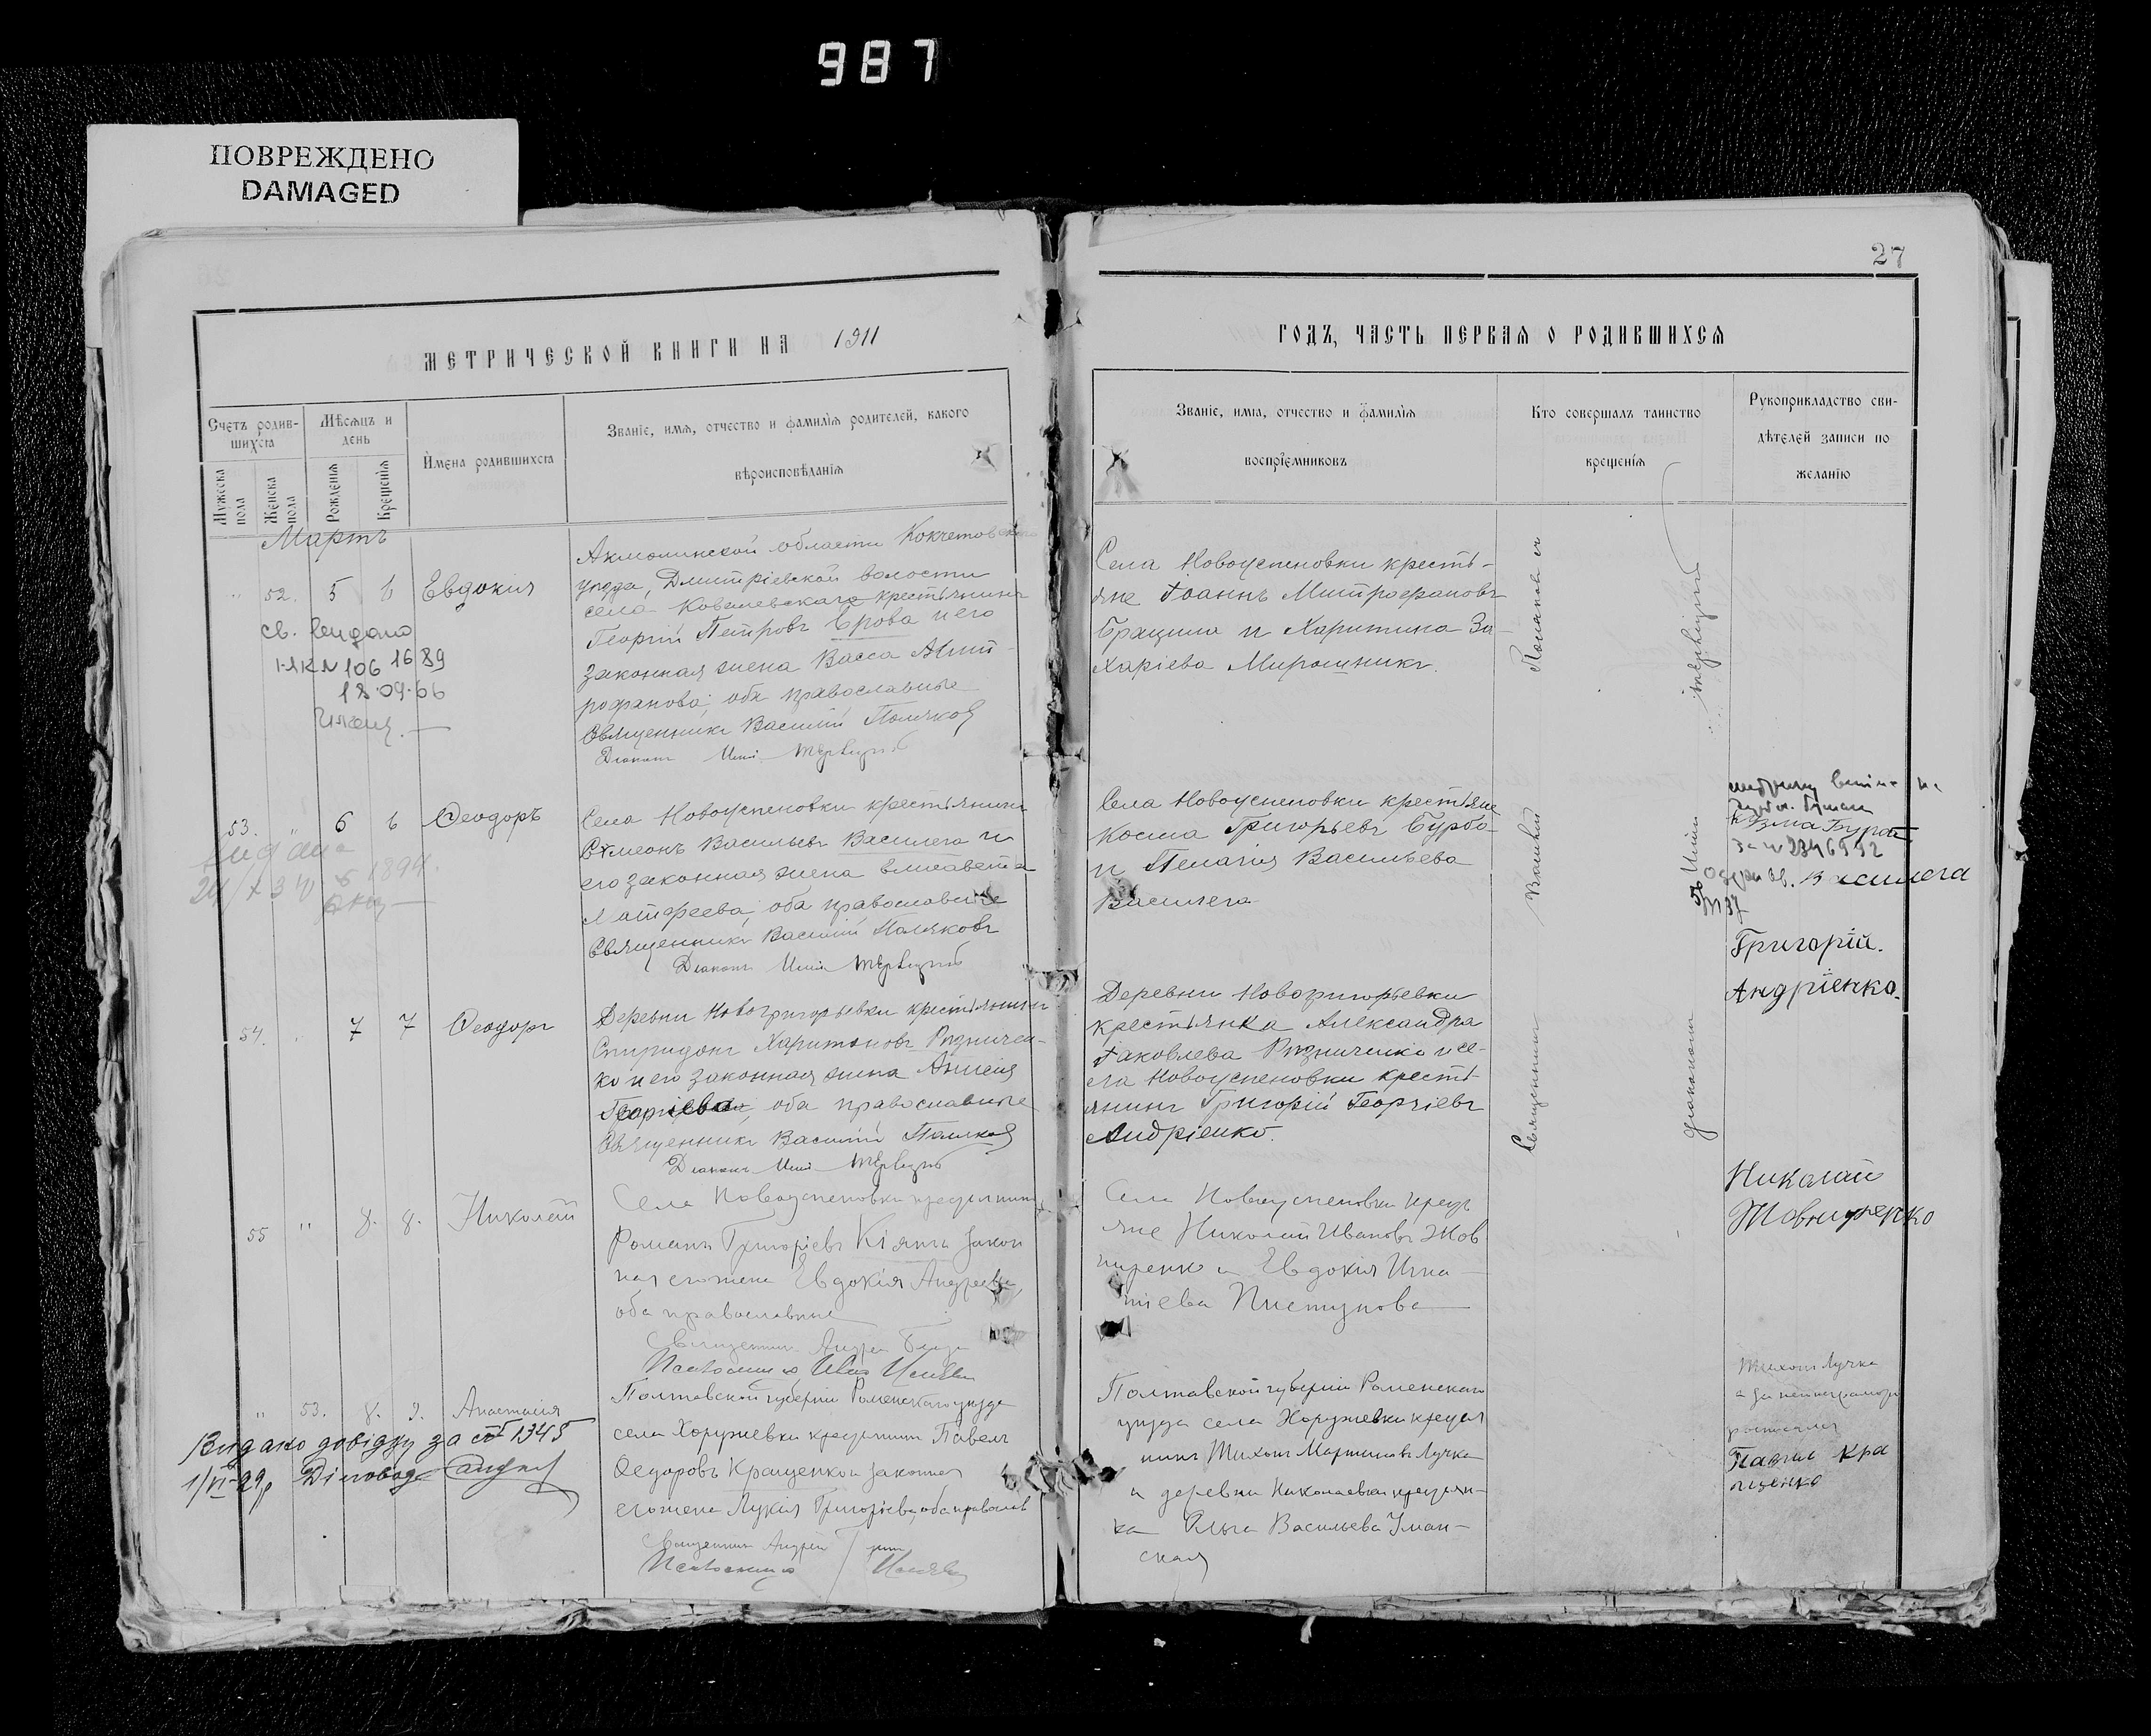 987
ПОВРЕЖДЕНО
DAMAGED
27
МЕТРИЧЕСКОЙ КНИГИ НА 1911
ГОДЪ, ЧАСТЬ ПЕРВАЯ О РОДИВШИХСЯ
Счетъ родив-
шихся
Мужеска
пола
Женска
пола
Мѣсяцъ и
день
Рожденія
Крещенія
Имена родившихся
Званіе, имя, отчество и фамилія родителей, какого
вѣроисповѣданія
Званіе, имя, отчество и фамилія
воспріемниковъ
Кто совершалъ таинство
крещенія
Рукоприкладство сви-
дѣтелей записи по
желанію
Мартъ
" 52. 5 6 Евдокия
Акмолинской области Кокчетовскаго
уѣзда, Дмитріевской волости
села Ковалевскаго крестьянинъ
Георгій Петровъ Ерова и его
законная жена Васса Мит-
рофанова, оба православные
Священникъ Василій Поляковъ
Діаконъ
Села Новоуспеновки кресть-
яне Іоаннъ Митрофановъ
и Харитина За-
харіева Мирошникъ.
св. видано
N 106 1689
18.09.66
53. " 6 6 Ѳеодоръ
Села Новоуспеновки крестьянинъ
Сѵмеонъ Васильевъ Василега и
его законная жена Елисавета
Матфеева, оба православные
Священникъ Василій Поляковъ
Діаконъ
Села Новоуспеновки крестьяне
Косма Григорьевъ Бурба
и Пелагія Васильева
Василега
54. " 7 7 Ѳеодоръ
Деревни Новогригорьевки крестьянинъ
Спиридонъ Харитоновъ Ризничен-
ко и его законная жена Анисія
Георгіева, оба православные
Священникъ Василій Поляковъ
Діаконъ
Деревни Новогригорьевки
крестьянка Александра
Іаковлева Ризниченко и се-
ла Новоуспеновки кресть-
янинъ Григорій Георгіевъ
Андріенко.
Григорій.
Андріенко.
55 " 8. 8. Николай
Села Новоуспеновки крестьянинъ
Романъ Григоріевъ Кіянъ закон
ная его жена Евдокія Андреева,
оба православные
Священникъ Андрей
Села Новоуспеновки кресть
яне Николай Ивановъ Жов
ниренко и Евдокія Игна
тіева Пистунова
Николай
Жовниренко
" 53. 8. 9. Анастасія
Полтавской губерніи Роменскаго уѣзда
села Хоружевки крестьянинъ Павелъ
Ѳедоровъ Кращенко и законная
его жена Лукія Григоріева, оба православ
Священникъ Андрей
Полтавской губерніи Роменскаго
уѣзда села Хоружевки крестья
нинъ Тихонъ Мартиновъ Лучка
и деревни Николаевки крестьян-
ка Ольга Васильева Уман-
ская
Тихонъ Лучка
а за
Павелъ Кра
щенко
Видано довідку за № 1345
1/VI-29р Діловод
Священникъ Василій Поляковъ съ
діакономъ